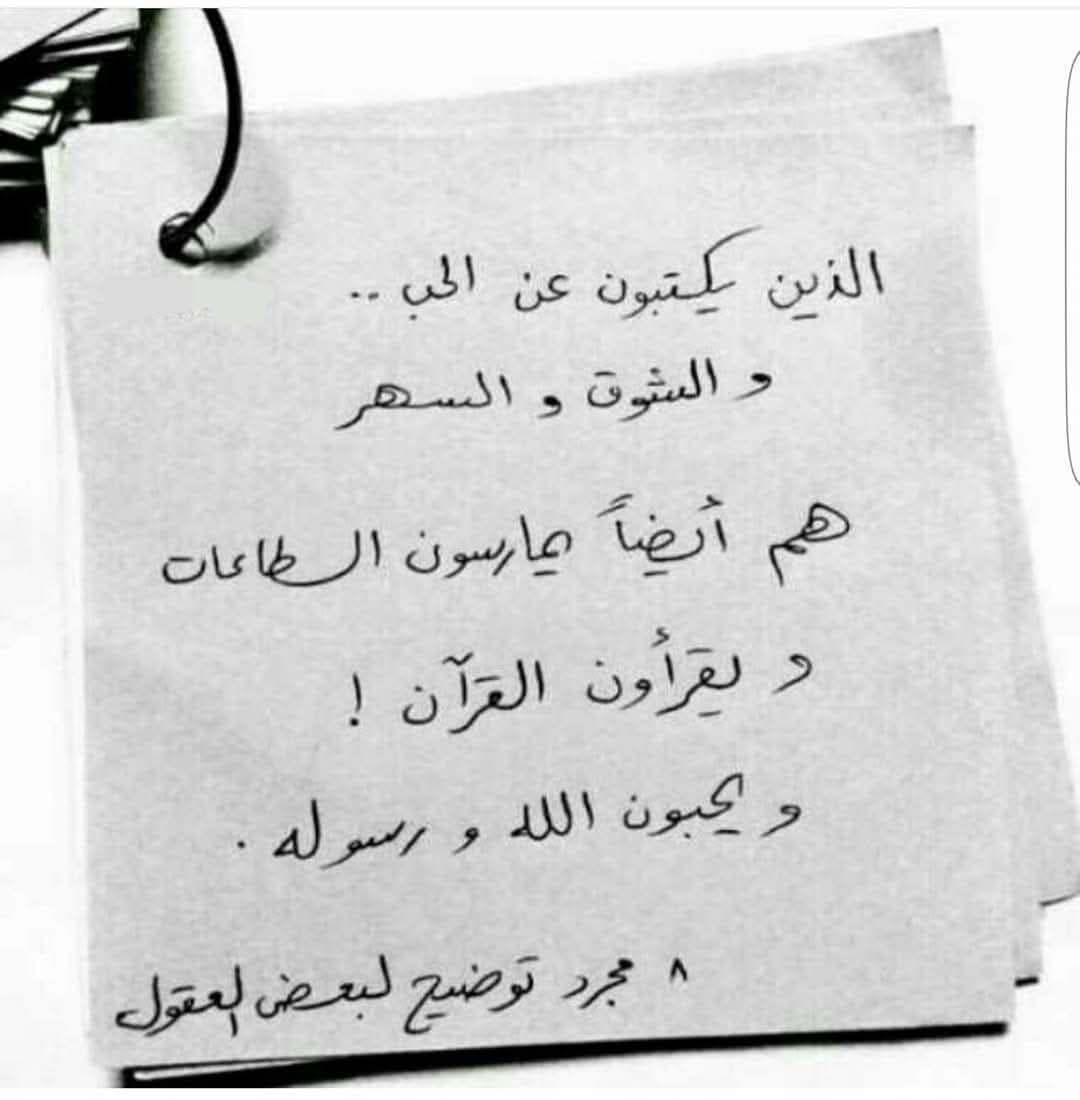 الذين يكتبون عن الحب ..
و الشوق و السهر
هم أيضاً يمارسون الطاعات
و يقرأون القرآن !
و يحبون الله و رسوله .
^ مجرد توضيح لبعض العقول